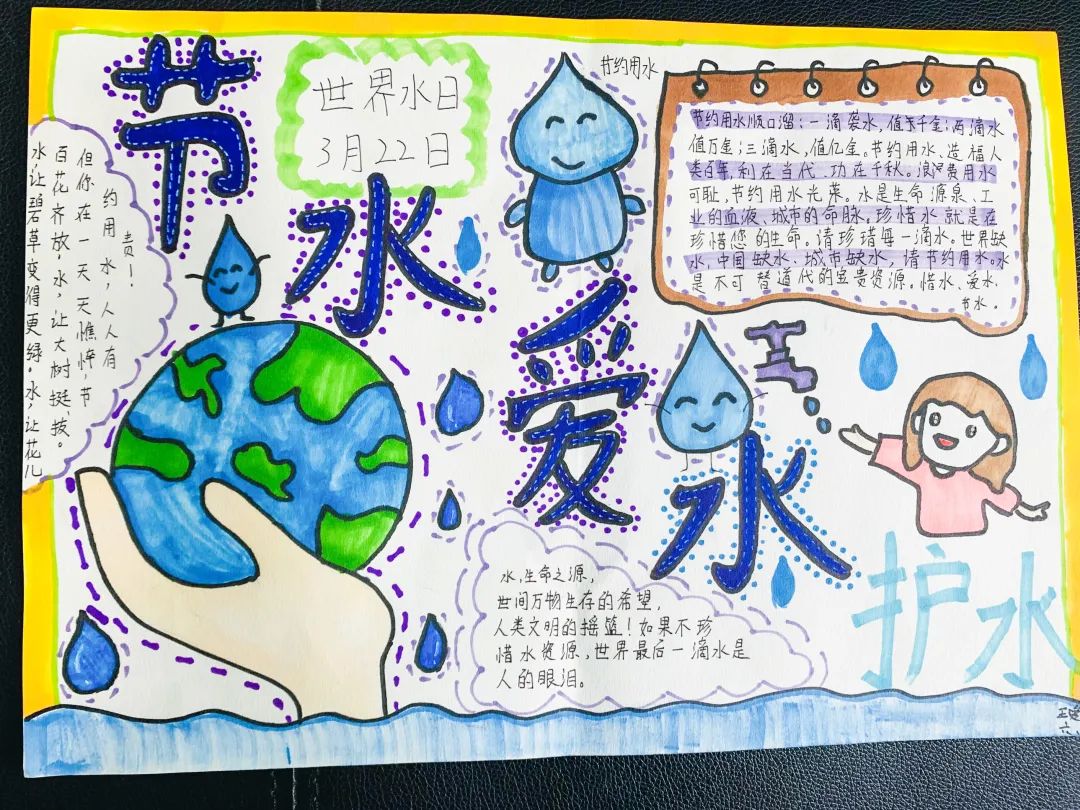 节水爱水
世界水日
3月22日
节约用水
水,让碧草变得更绿,水,让花儿
百花齐放,水,让大树挺拔。
但你在一天天憔悴,节
约用水,人人有
责!
节约用水顺口溜:一滴水,值千金;两滴水
值万金;三滴水,值亿金。节约用水、造福人
类百年,利在当代、功在千秋。浪费用水
可耻,节约用水光荣。水是生命源泉、工
业的血液、城市的命脉,珍惜水就是在
珍惜您的生命。请珍每一滴水。世界缺
水、中国缺水、城市缺水,请节约用水。水
是不可替道代的宝贵资源。惜水、爱水、
节水。
水,生命之源,
世间万物生存的希望,
人类文明的摇篮!如果不珍
惜水资源,世界最后一滴水是
人的眼泪。
护水